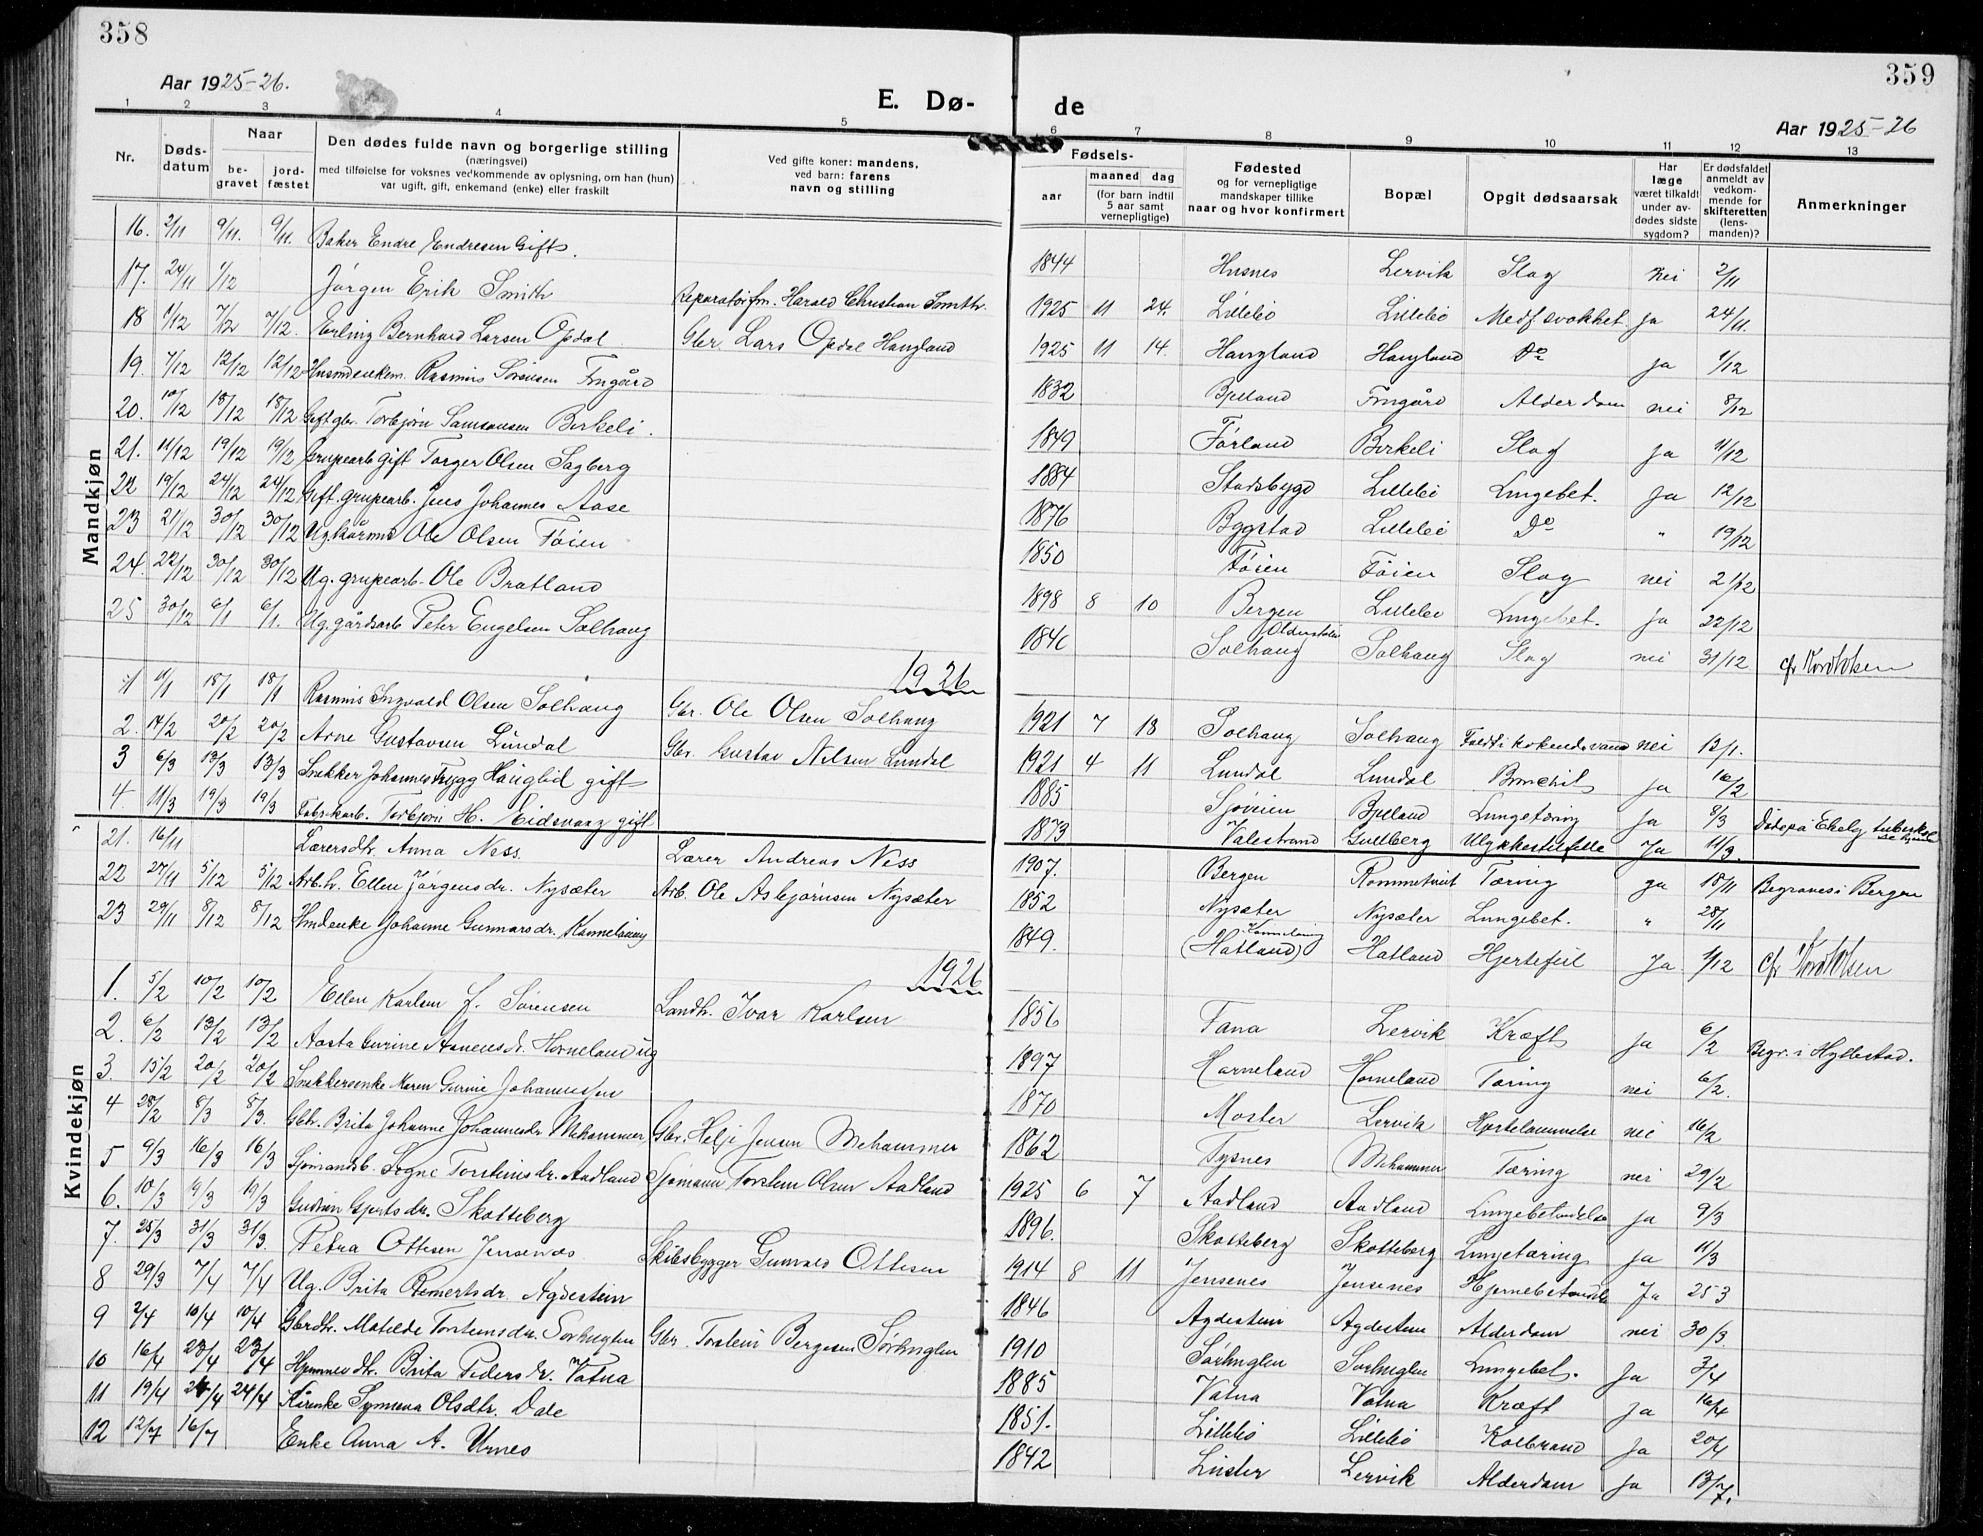 358
359
Aar 1925-26.
E. Dø-
de
Aar 1925-26
1 2 3 4 5 6 7 8 9 10 11 12 13
Nr.
Døds-
datum
Naar
be-
gravet
jord-
fæstet
Den dødes fulde navn og borgerlige stilling
(næringsvei)
med tilføielse for voksnes vedkommende av oplysning, om han (hun)
var ugift, gift, enkemand (enke) eller fraskilt
Ved gifte koner: mandens,
ved barn: farens
navn og stilling
Fødsels-
aar
maaned dag
(for barn indtil
5 aar samt
vernepligtige)
Fødested
og for vernepligtige
mandskaper tillike
naar og hvor konfirmert
Bopæl
Opgit dødsaarsak
Har
læge
været tilkaldt
under av-
dødes sidste
sygdom?
Er dødsfaldet
anmeldt av
vedkom-
mende for
skifteretten
(lens-
manden)?
Anmerkninger
Mandkjøn
16. 2/11 9/11. 9/11. Baker Endre Endresen Gift. 1844 Husnes Lervik Slag nei 2/11
17. 24/11 1/12 Jørgen Erik Smith Reparatørfm. Harald Christian Smith. 1925 11 24. Litlebø Litlebø Medf. svakhet ja 24/11
18 1/12 7/12 7/12. Erling Bernhard Larsen Opdal. Gbr. Lars Opdal Haugland 1925 11 14. Haugland Haugland Do ja 1/12
19. 7/12 12/12 12/12 Rasmus Sørensen 1832 Bjelland Alderdom nei 8/12
20. 10/12 18/12 18/12 Gift gbr. Torbjørn Samsonsen Birkeli. 1849 Førland Birkeli Slag ja 11/12
21. 11/12 19/12 19/12 Grupearb. gift Torger Olsen Sagberg 1884 Stadsbygd Litlebø Lungebet. Ja 12/12
22 19/12 24/12 24/12 Gift. grupearb. Jens Johannes Aase 1876 Bygstad Litlebø Do " 19/12
23 21/12 30/12 30/12 Ug. Ole Olsen Føien 1850 Føien Føien Slag nei 21/12
24. 22/12 30/12 30/12 Ug. grupearb. Ole Bratland 1898 8 10 Bergen Litlebø Lungebet. ja 22/12
25 30/12 6/1 6/1. Ug. gårdsarb. Peter Engelsen Solhaug 1846 Solhaug Solhaug Slag nei 31/12
1926
1 11/1 18/1 18/1 Rasmus Ingvald Olsen Solhaug Gbr. Ole Olsen Solhaug 1921 7 18 Solhaug Solhaug Faldt i kokende vand nei 12/1.
2. 14/2 20/2 20/2 Arne Gustavsen Lundal Gbr. Gustav Nilsen Lundal 1921 4 11 Lundal Lundal Bronchit ja 16/2
3 6/3 13/3 13/3 Snekker Johannes Trygg Hauglid gift 1885 Sjøveien Bjelland Lungetæring ja 8/3 Døde på Ekely tuberkulosehjem
4. 11/3 19/3 19/3 Fabrikarb. Torbjørn H. Eidsvaag gift 1873 Valestrand Gullberg Ulykkestilfelle Ja 11/3.
Kvindekjøn
21. 16/11 Lærersdtr. Anna Ness. Lærer Andreas Ness 1907. Bergen Rommetveit Tæring ja 18/11 Begravesi Bergen
22 27/11 5/12 5/12 Arb.h. Ellen Jørgensdr. Nysæter Arb. Ole Asbjørnsen Nysæter 1852 Nysæter Nysæter Lungebet. " 28/11
23 29/11 8/12 8/12 Hmdenke Johanne Gunnarsdr. 1849. (Hatland) Hatland Hjertefeil Ja 1/12
1926
1. 5/2 10/2 10/2 Ellen Karlsen f. Sørensen Landh. Ivar Karlsen 1856 Fana Lervik Kræft ja 6/2
2. 6/2 13/2 13/2 Aasta Gurine Horneland ug 1897 Horneland Horneland Tæring nei 6/2. Begr. i Hyllestad.
3. 15/2 20/2 20/2 Snekkersenke Karen Gurine Johannessen 1870 Moster Lervik Hjertelammelse nei 16/2
4 28/2 8/3 8/3. Gbr. Brita Johanne Johannesdr. Mehammer Gbr. Helje Jensen Mehammer 1862 Tysnes Mehammer Tæring nei 29/2
5 9/3 16/3 16/3 Sjømandsb. Torsteinsdr. Aadland Sjømann Torstein Olsen Aadland 1925 6 7 Aadland Aadland Lungebetendelse ja 9/3
6. 10/3 19/3 19/3 Gudrun Gjertsdr. Skotteberg 1896. Skotteberg Skotteberg Lungetæring ja 11/3
7. 25/3 31/3 31/3. Petra Ottesen Jensenes. Skibsbygger Gunvald Ottesen 1914 8 11 Jensenes Jensenes Hjernebetændelse Ja 25 3
8 29/3 7/4 7/4 Ug. Brita Reinertsdr. Agdestein 1846 Agdestein Agdestein Alderdom nei 30/3.
9 2/4 10/4 10/4 Gbrdtr. Matilde Torsteinsdr. Sørhuglen Gbr. Torstein Bergesen Sørhuglen 1910 Sørhuglen Sørhuglen Lungebet. Ja 3/4
10 16/4 23/4 23/4 Brita Pedersdr. Vatna 1885 Vatna Vatna Kræft ja 16/4
11 19/4 24/4 24/4 Synneva Olsdtr. Dale 1851. Litlebø Litlebø Kolbrand Ja 20/4
12 12/7 16/7 Enke Anna A. Urnes 1842 Luster Lervik Alderdom ja 13/7.